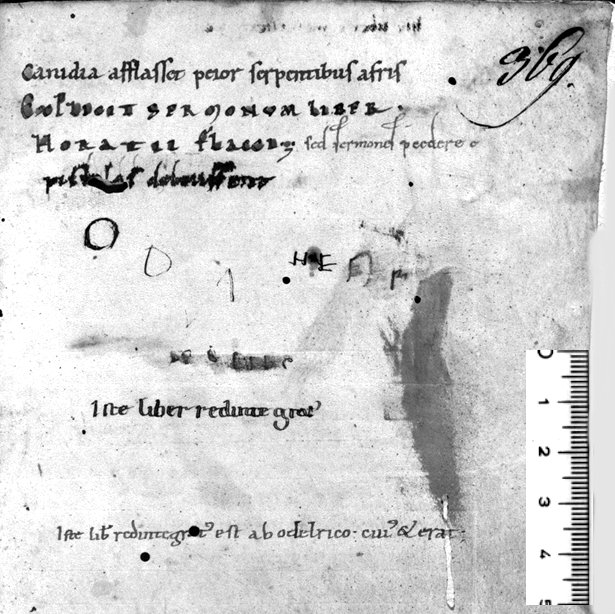 369
canidia afflasset peior serpentibus afris
EXPLICIT SERMONUM LIBER.
HORATII flacci sed sermones p̄cedere e
pistolas debuissent
O
O
1
H E
Iste liber redinte grat᾽
Iste lib̄ redintegrat᾽ est ab odelrico· cui᾽ & erat
0
1
2
3
4
5